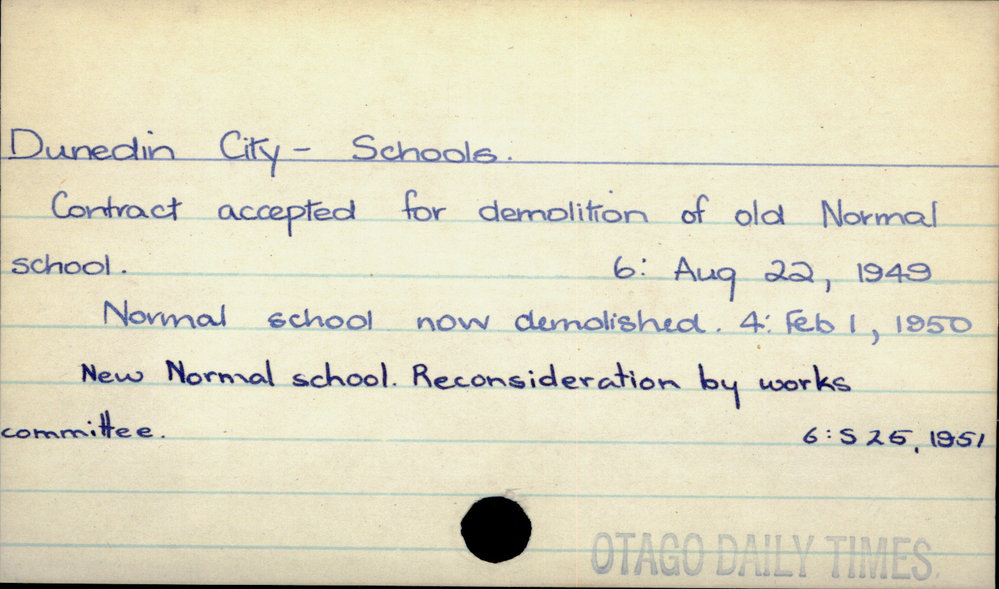 Dunedin City - Schools.
Contract accepted for demolition of old Normal
school. 6: Aug 22, 1949
Normal school now demolished. 4: Feb 1, 1950
New Normal school. Reconsideration by works
committee. 6: S 25, 1951
OTAGO DAILY TIMES.